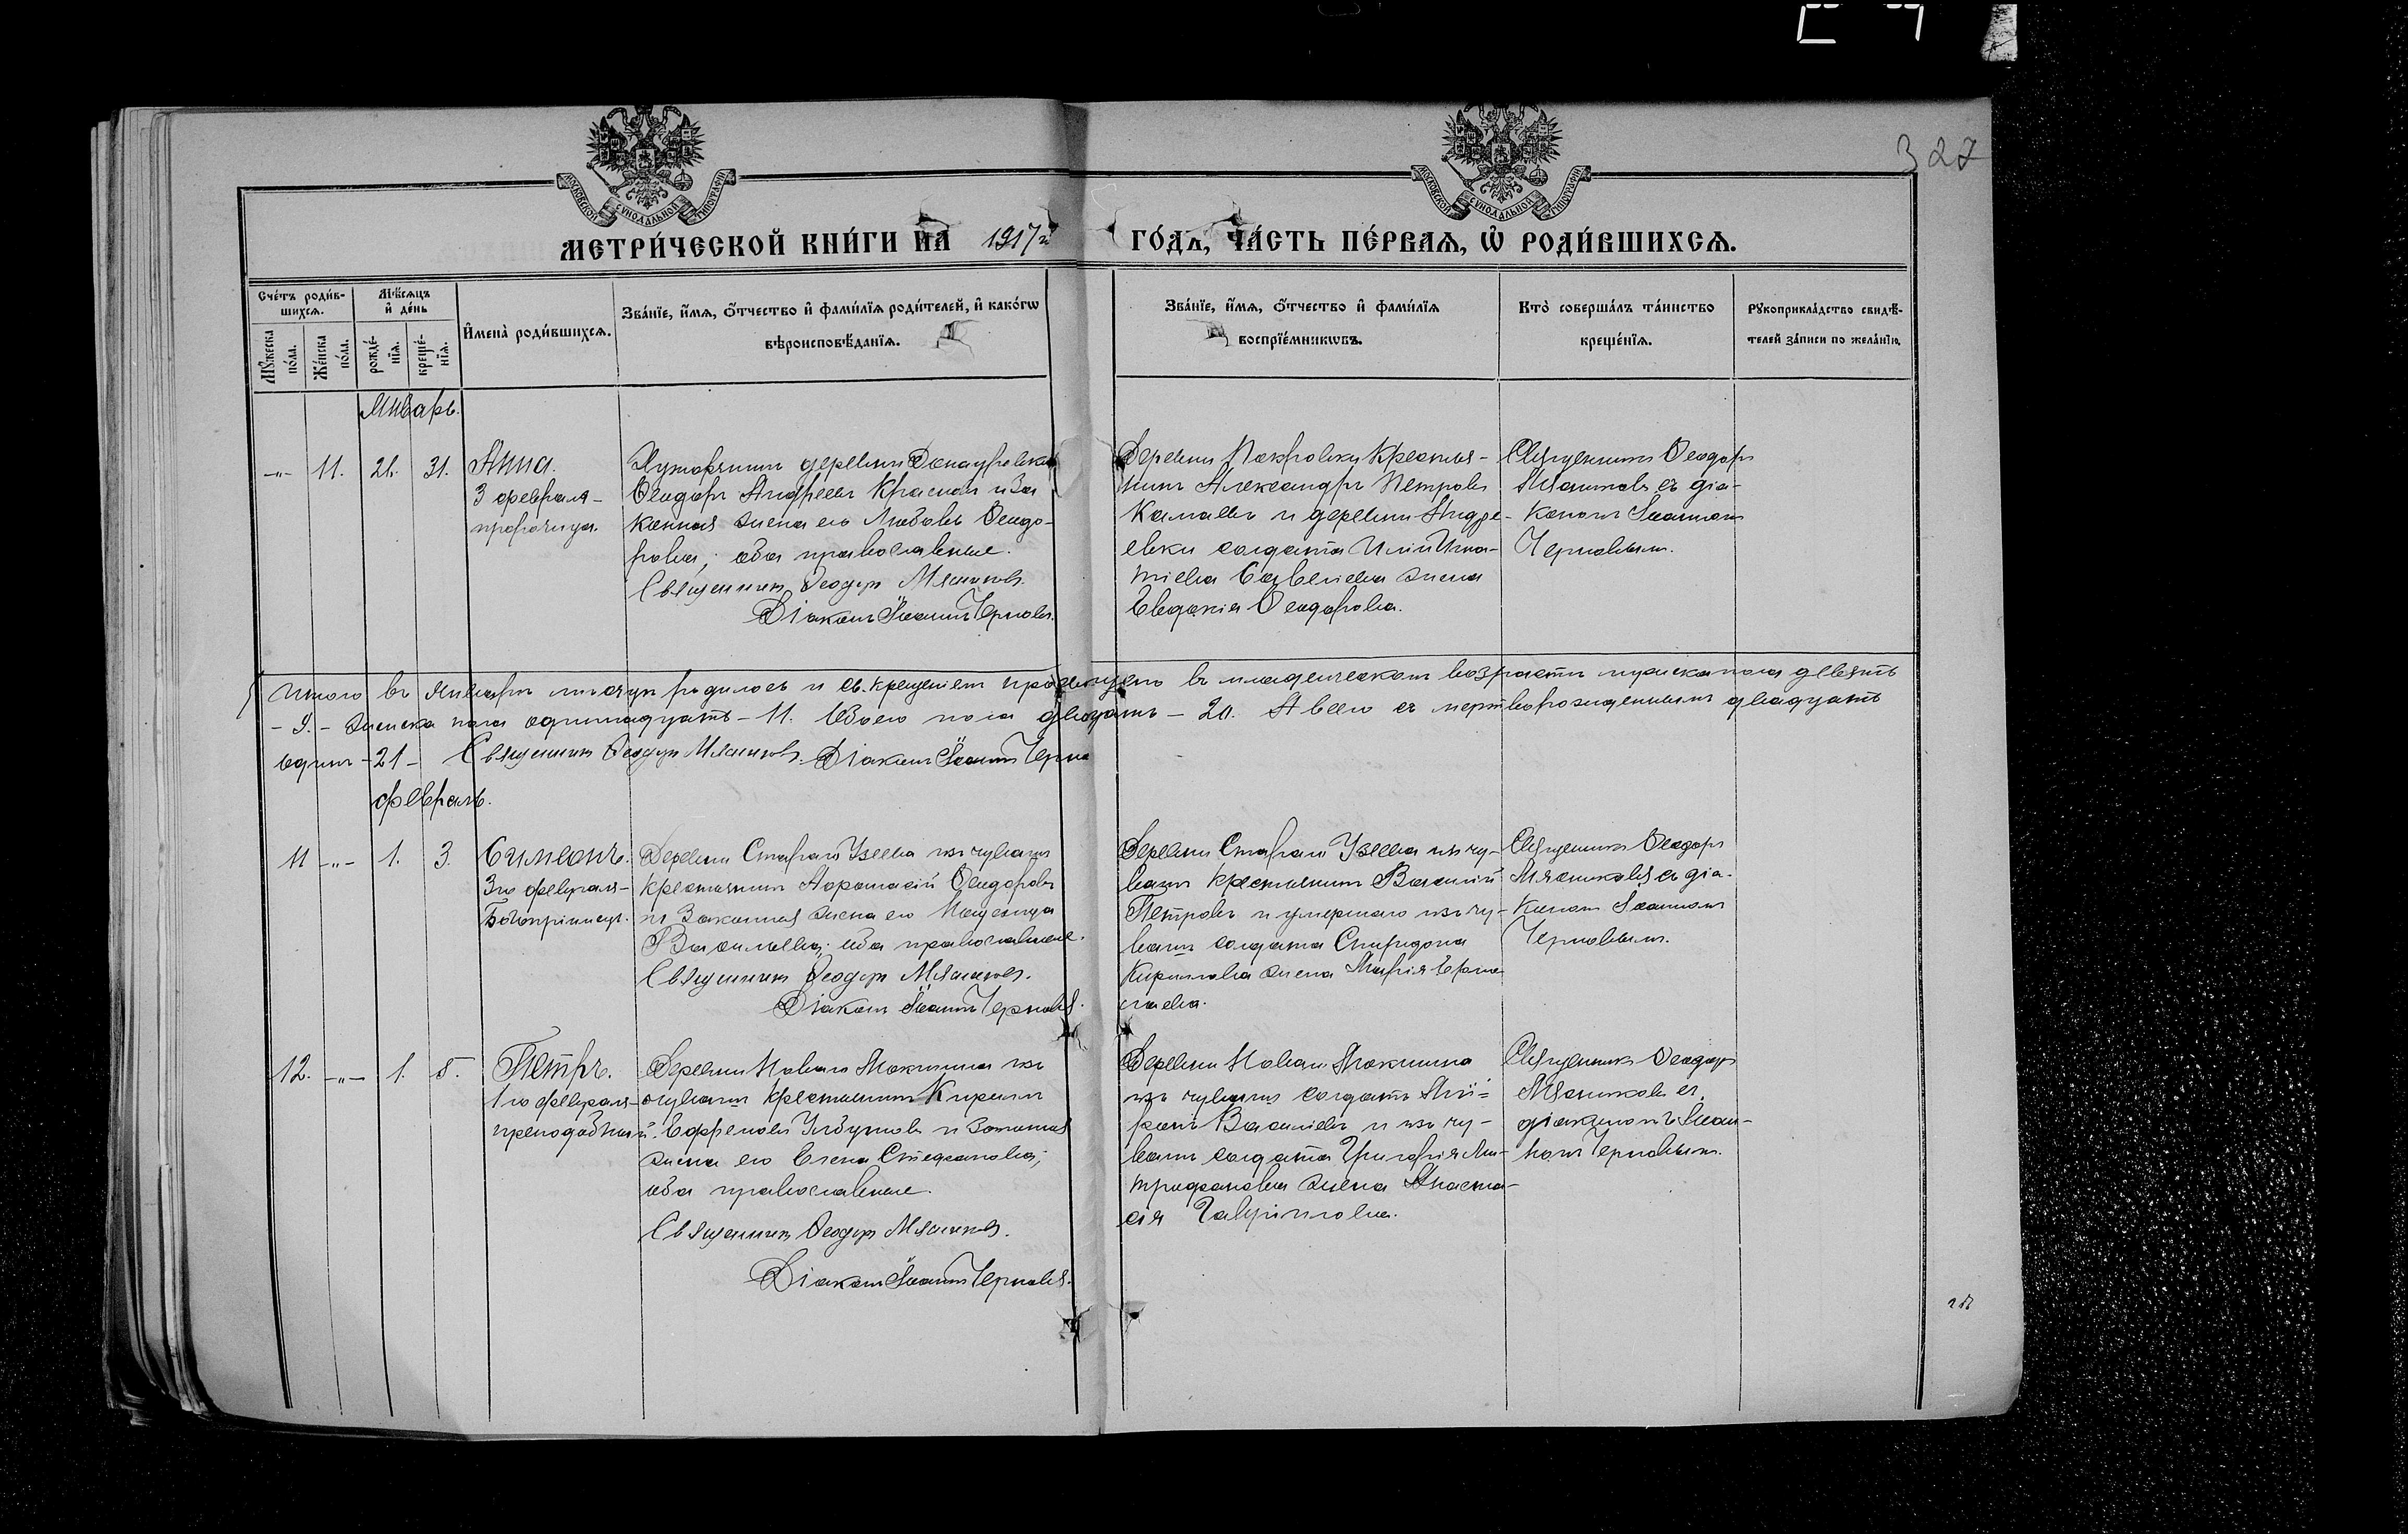 327
МЕТРИ́ЧЕСКОЙ КНИ́ГИ НА 1917 г. ГО́ДЪ, ЧА́СТЬ ПЕ́РВАѦ, Ѡ҆ РОДИ́ВШИХСѦ.
Сче́тъ роди́в-
шихсѧ.
Мѹ́жеска по́ла.
Же́нска по́ла.
Мѣ́сѧцъ
и҆ де́нь
рожде́-
нїѧ.
креще́-
нїѧ.
И҆мена̀ роди́вшихсѧ.
Зва́нїе, и҆́мѧ, ѻ҆́тчество и҆ фами́лїѧ роди́телей, и҆ како́гѡ
вѣроисповѣ́данїѧ.
Зва́нїе, и҆́мѧ, ѻ҆́тчество и҆ фами́лїѧ
воспрїе́мникѡвъ.
Кто̀ соверша́лъ та́инство
креще́нїѧ.
Рꙋкоприкла́дство свидѣ́-
телей за́писи по жела́нїю.
Январь.
-"- 11. 21. 31.
Анна.
3 февраля-
пророчица.
деревни
Ѳеодоръ Андреевъ Красновъ и за
конная жена его Любовь Ѳеодо-
рова; оба православные.
Священникъ Ѳеодоръ Мясниковъ.
Діаконъ Іоаннъ Черновъ.
Деревни Покровки крестья-
нинъ Александръ Петровъ
Камаевъ и деревни Андре-
евки солдата Иліи Игна-
тіева Савельева жена
Евдокія Ѳеодорова.
Священникъ Ѳеодоръ
Мясниковъ съ діа-
кономъ Іоанномъ
Черновымъ.
Итого въ Январѣ мѣсяцѣ родилось и св. крещеніемъ просвѣщено въ младенческомъ возрастѣ мужска пола девять
- 9. - женска пола одиннадцать - 11. Обоего пола двадцать - 20. А всего съ мертворожденнымъ двадцать
одинъ - 21 - Священникъ Ѳеодоръ Мясниковъ. Діаконъ Іоаннъ Черно
Февраль.
11 -"- 1. 3.
Симеонъ.
3го февраля-
Богопріимецъ.
Деревни Стараго Узеева изъ чувашъ
крестьянинъ Аѳанасій Ѳеодоровъ
и законная жена его
Васильева; оба православные.
Священникъ Ѳеодоръ Мясниковъ.
Діаконъ Іоаннъ Черновъ.
Деревни Стараго Узеева изъ чу-
вашъ крестьянинъ Василій
Петровъ и умершаго изъ чу-
вашъ солдата Спиридона
Кириллова жена Марія
Священникъ Ѳеодоръ
Мясниковъ съ діа-
кономъ Іоанномъ
Черновымъ.
12. -"- 1. 5.
Петръ.
1го февраля-
преподобный.
Деревни Новаго Мокшина изъ
чувашъ крестьянинъ Кириллъ
Ефремовъ и законная
жена его Елена Стефанова;
оба православные.
Священникъ Ѳеодоръ Мясниковъ.
Діаконъ Іоаннъ Черновъ.
Деревни Новаго Мокшина
изъ чувашъ солдатъ Мѵ-
ронъ Васильевъ и изъ чу-
вашъ солдата Григорія Ми-
трофанова жена Анаста-
сія Гавріилова.
Священникъ Ѳеодоръ
Мясниковъ съ
діакономъ Іоан-
номъ Черновымъ.